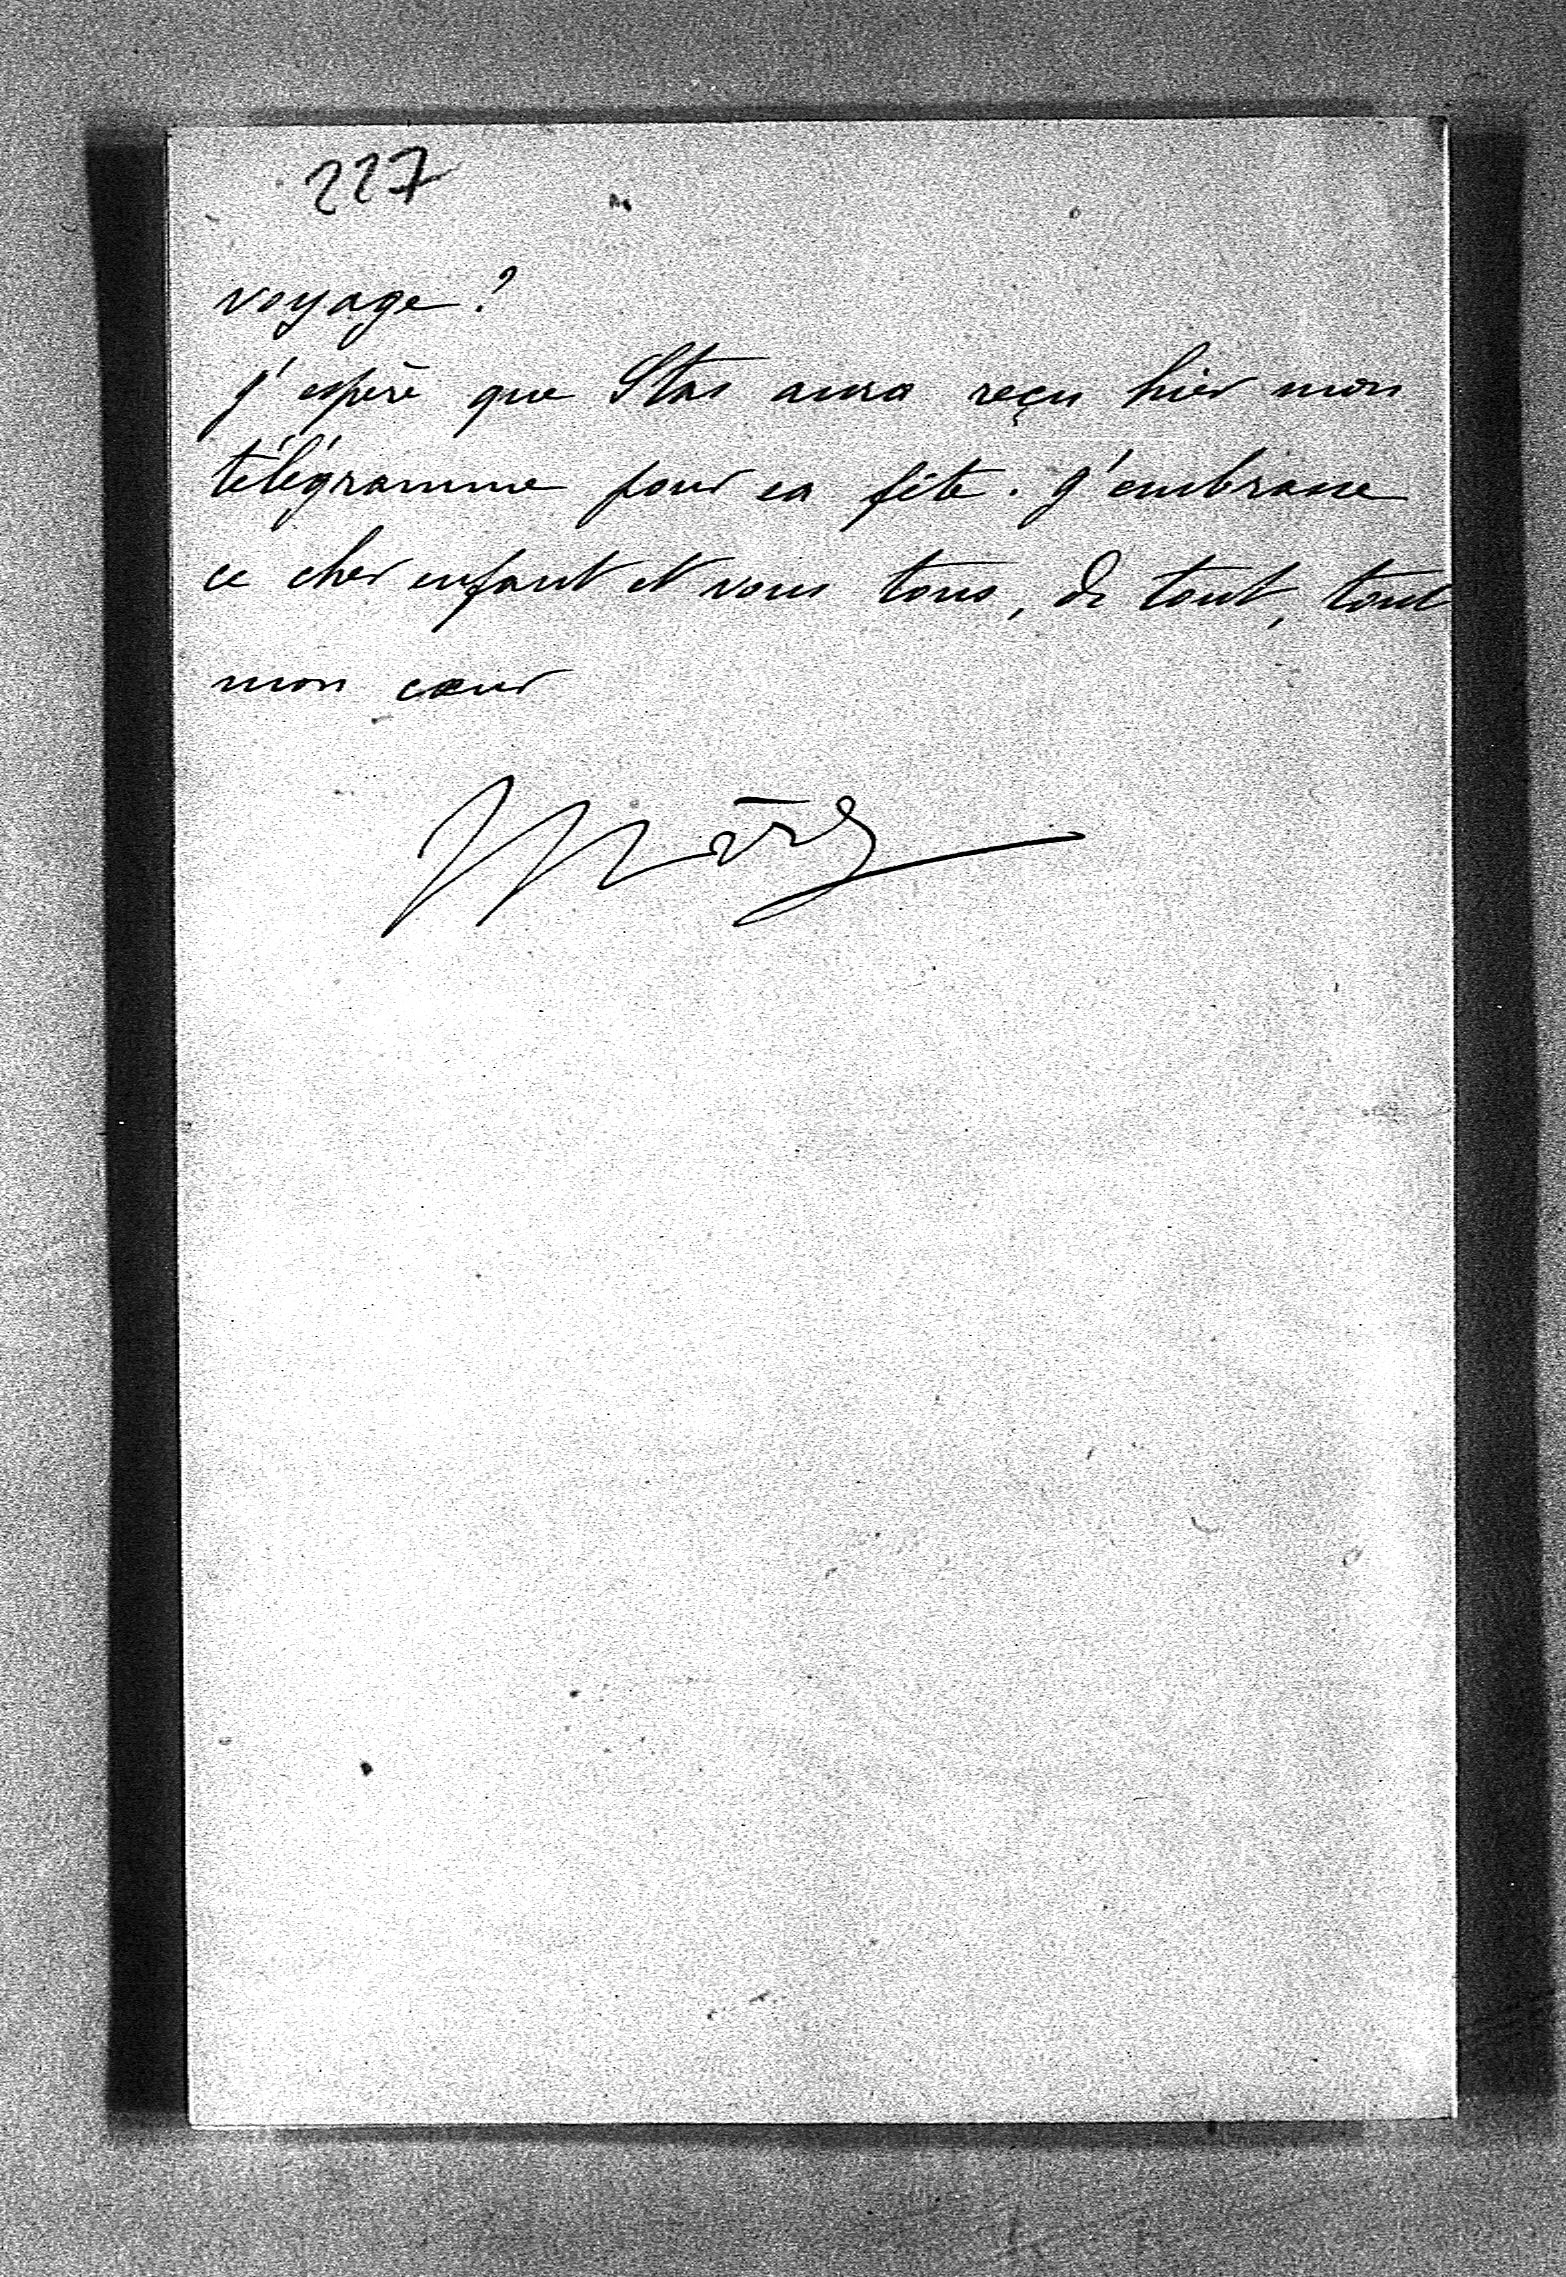 227
voyage ?
j'espère que Stas aura reçu hier mon
télégramme pour sa fête. J'embrasse
ce cher enfant et vous tous, de tout, tout
mon cœur